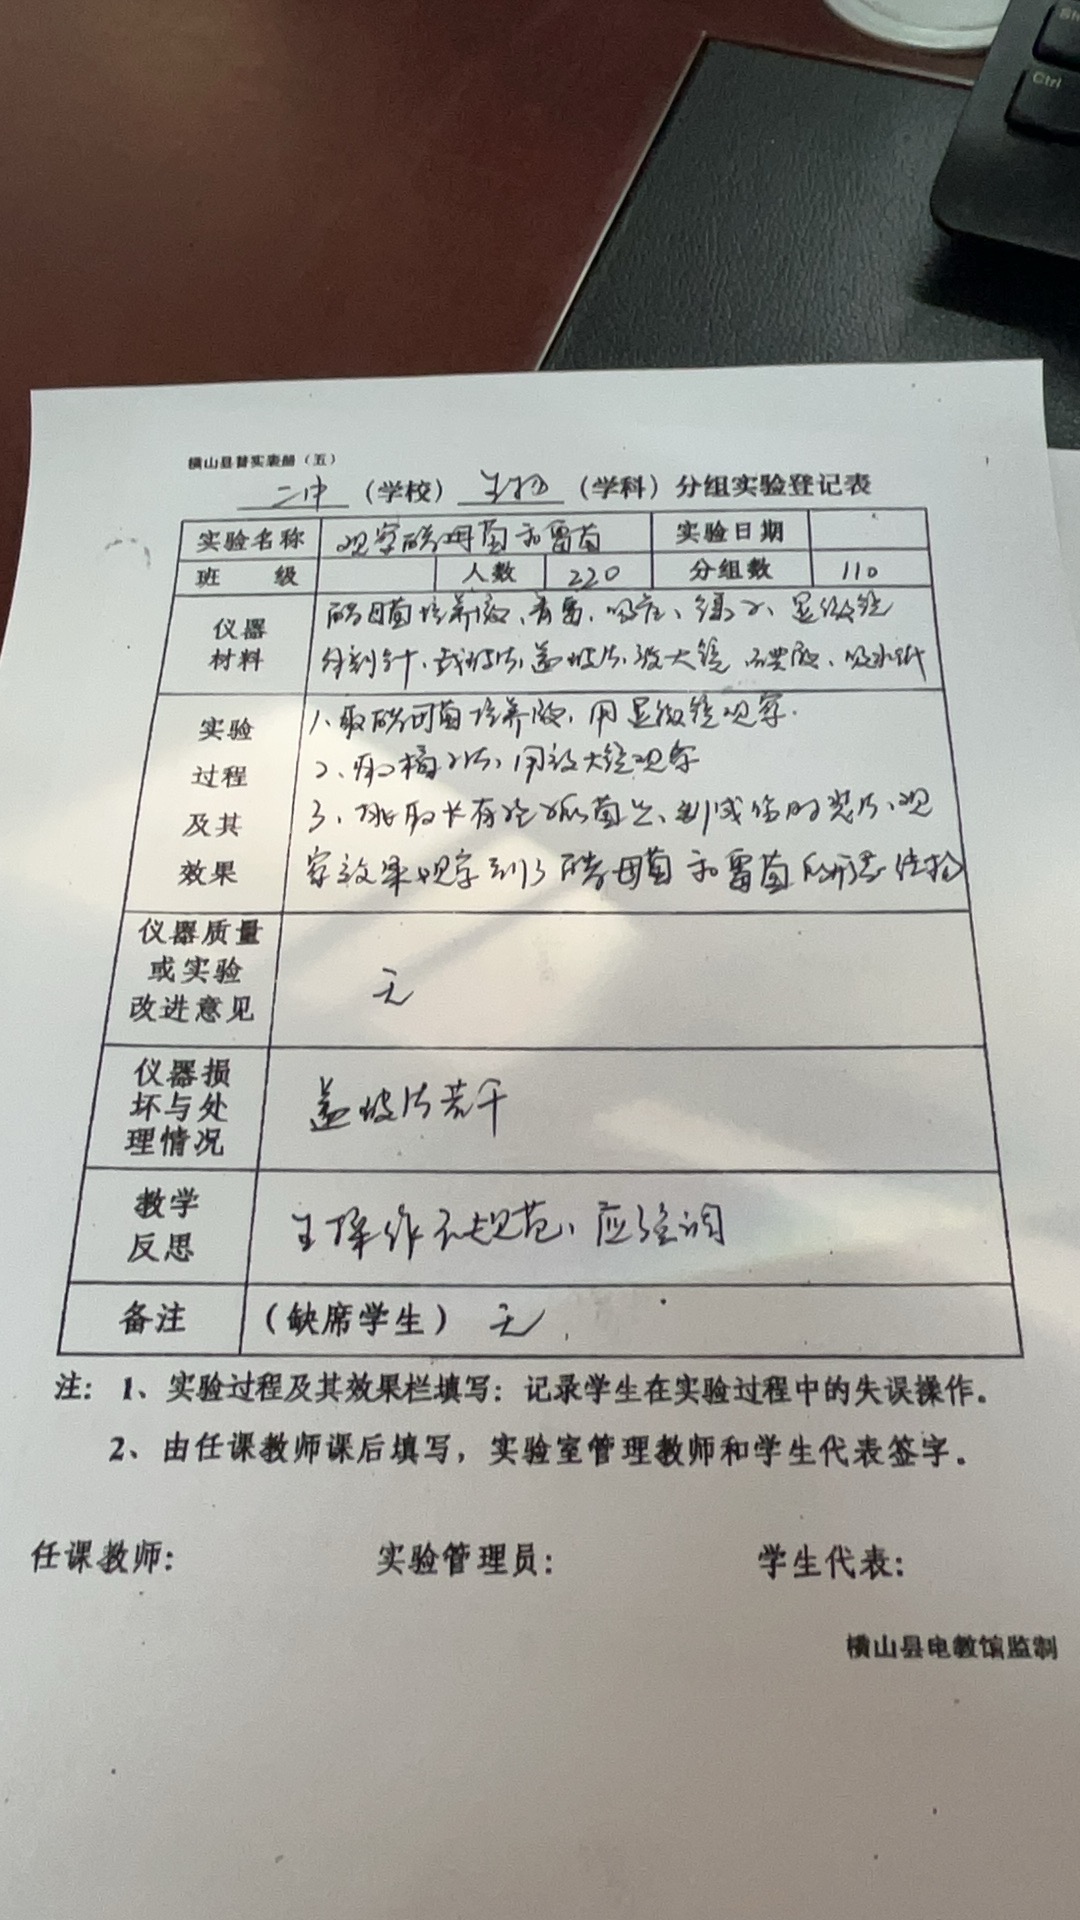 横山县普实表册（五）
二中（学校）生物（学科）分组实验登记表
实验名称 观察酵母菌和霉菌 实验日期
班 级 人数 220 分组数 110
仪器材料
酵母菌培养液、青霉、吸管、镊子、显微镜
解剖针、载玻片、盖玻片、放大镜、碘液、吸水纸
实验过程及其效果
1、取酵母菌培养液，用显微镜观察.
2、取橘子皮，用放大镜观察
3、挑取长有孢子的菌丝、制成临时装片、观
察效果观察到了酵母菌和霉菌的形态结构
仪器质量
或实验
改进意见
无
仪器损
坏与处
理情况
盖玻片若干
教学
反思
生操作不规范、应强调
备注 （缺席学生） 无.
注：1、实验过程及其效果栏填写：记录学生在实验过程中的失误操作。
2、由任课教师课后填写，实验室管理教师和学生代表签字。
任课教师： 实验管理员： 学生代表：
横山县电教馆监制
Ctrl